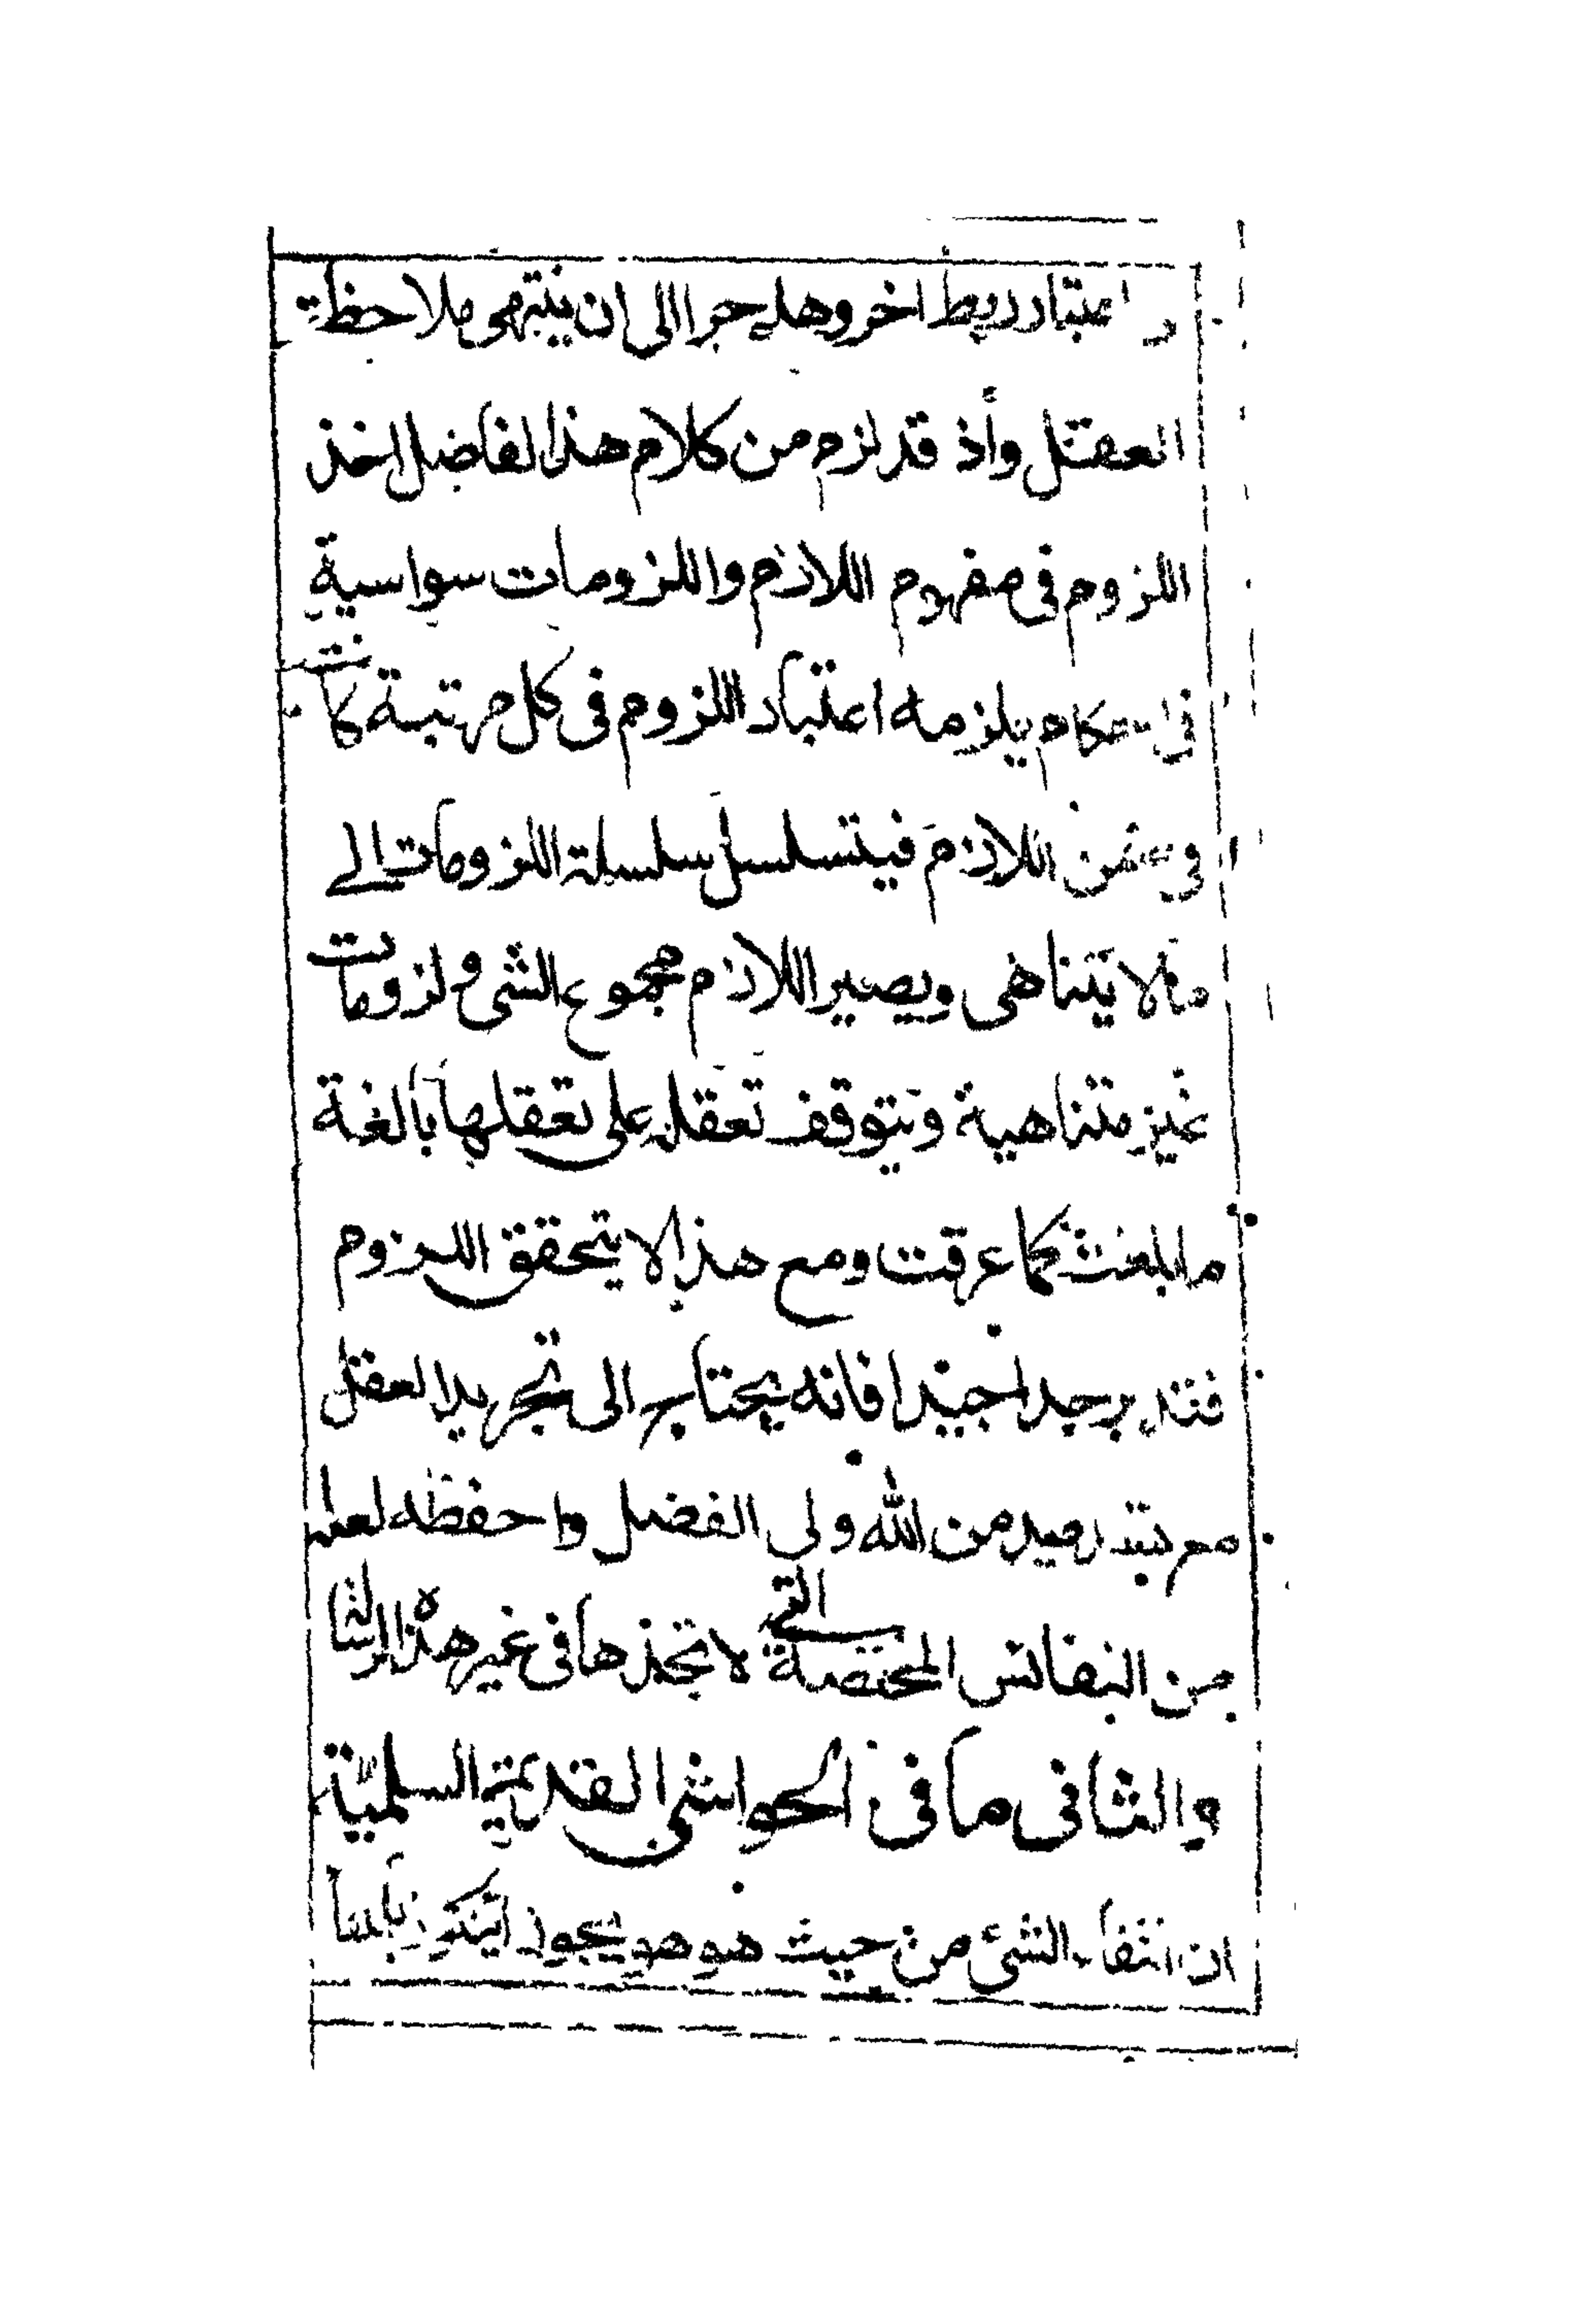 و اعتبار ربط اخر وهلم جرا الى ان ينتهى ملاحظة
العقل وأذ قد لزم من كلام هذا الفاضل اخذ
اللزوم فى مفهوم اللازم واللزومات سواسية
فى يلزمه اعتبار اللزوم فى كل مرتبة كانت
فى ضمن اللازم فيتسلسل سلسلة اللزومات الى
مالا يتناهى ويصير اللازم مجموع الشى ولزومات
غير متناهية ويتوقف تعقله على تعقلها بالغة
ما بلغت كما عرفت ومع هذا لا يتحقق اللزوم
فتدبر جيدا فانه يحتاج الى تجريد العقل
مع من الله ولى الفضل واحفظه لعله
من النفائس المختصة التى لا تجدها فى غير هذه الرسالة
والثانى ما فى الحواشى القديمة السلمية
ان انتفاء الشئ من حيث هو هو يجوز ان يكون